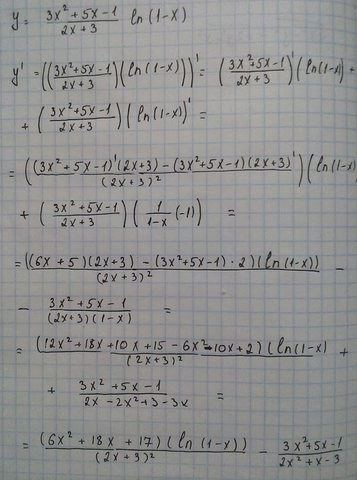 y = (3x² + 5x - 1)/(2x + 3) ln(1-x)
y' = (((3x²+5x-1)/(2x+3))(ln(1-x)))' = ((3x²+5x-1)/(2x+3))'(ln(1-x)) +
+ ((3x²+5x-1)/(2x+3))(ln(1-x))' =
= (((3x²+5x-1)'(2x+3) - (3x²+5x-1)(2x+3)')/(2x+3)²)(ln(1-x)
+ ((3x²+5x-1)/(2x+3))(1/(1-x)(-1)) =
= ((6x+5)(2x+3) - (3x²+5x-1)·2)(ln(1-x))/(2x+3)² -
- (3x²+5x-1)/((2x+3)(1-x)) =
= (12x²+18x+10x+15-6x²-10x+2)(ln(1-x)/(2x+3)² +
+ (3x²+5x-1)/(2x-2x²+3-3x) =
= (6x²+18x+17)(ln(1-x))/(2x+3)² - (3x²+5x-1)/(2x²+x-3)